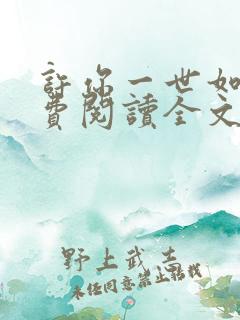 許你一世如
費閱讀全文
野上武志
未经同意禁止转载